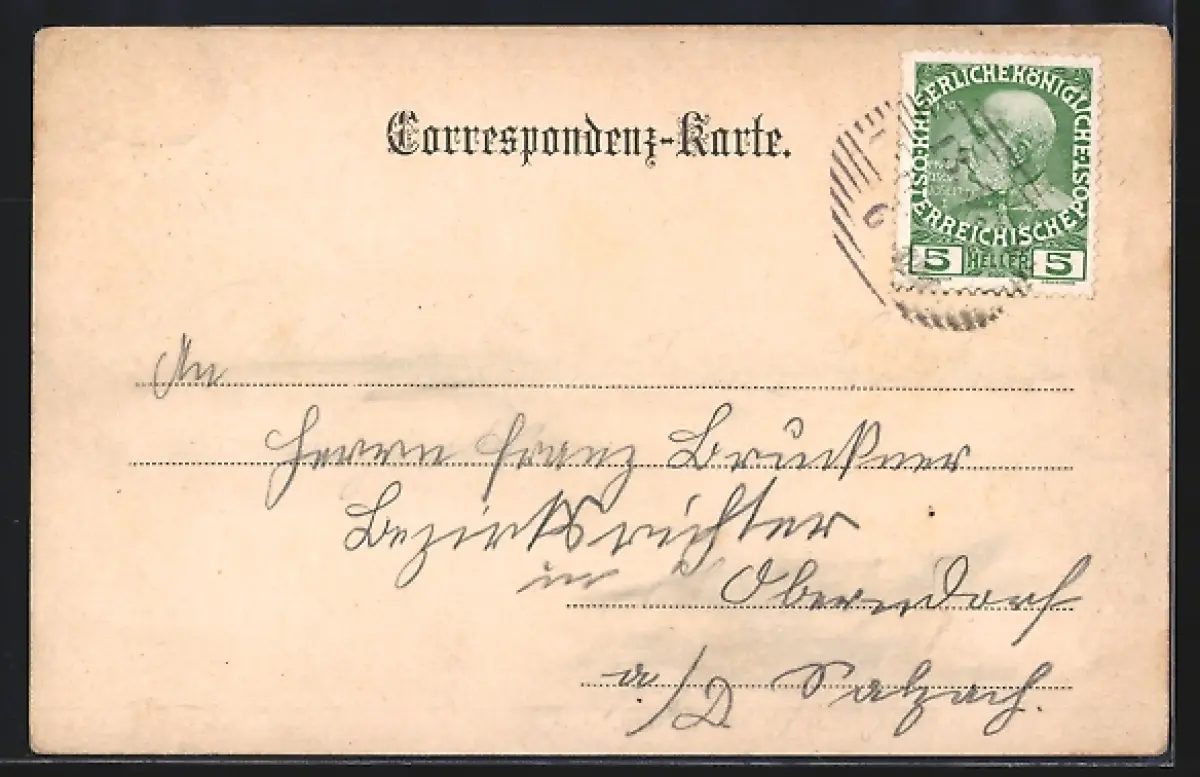 Correspondenz-Karte.
KAISERLICHE KÖNIGLICHE ÖSTERREICHISCHE POST
5 HELLER 5
An
Herrn Franz Bruckner
Bezirksrichter
in Oberndorf
a/D Salzach.